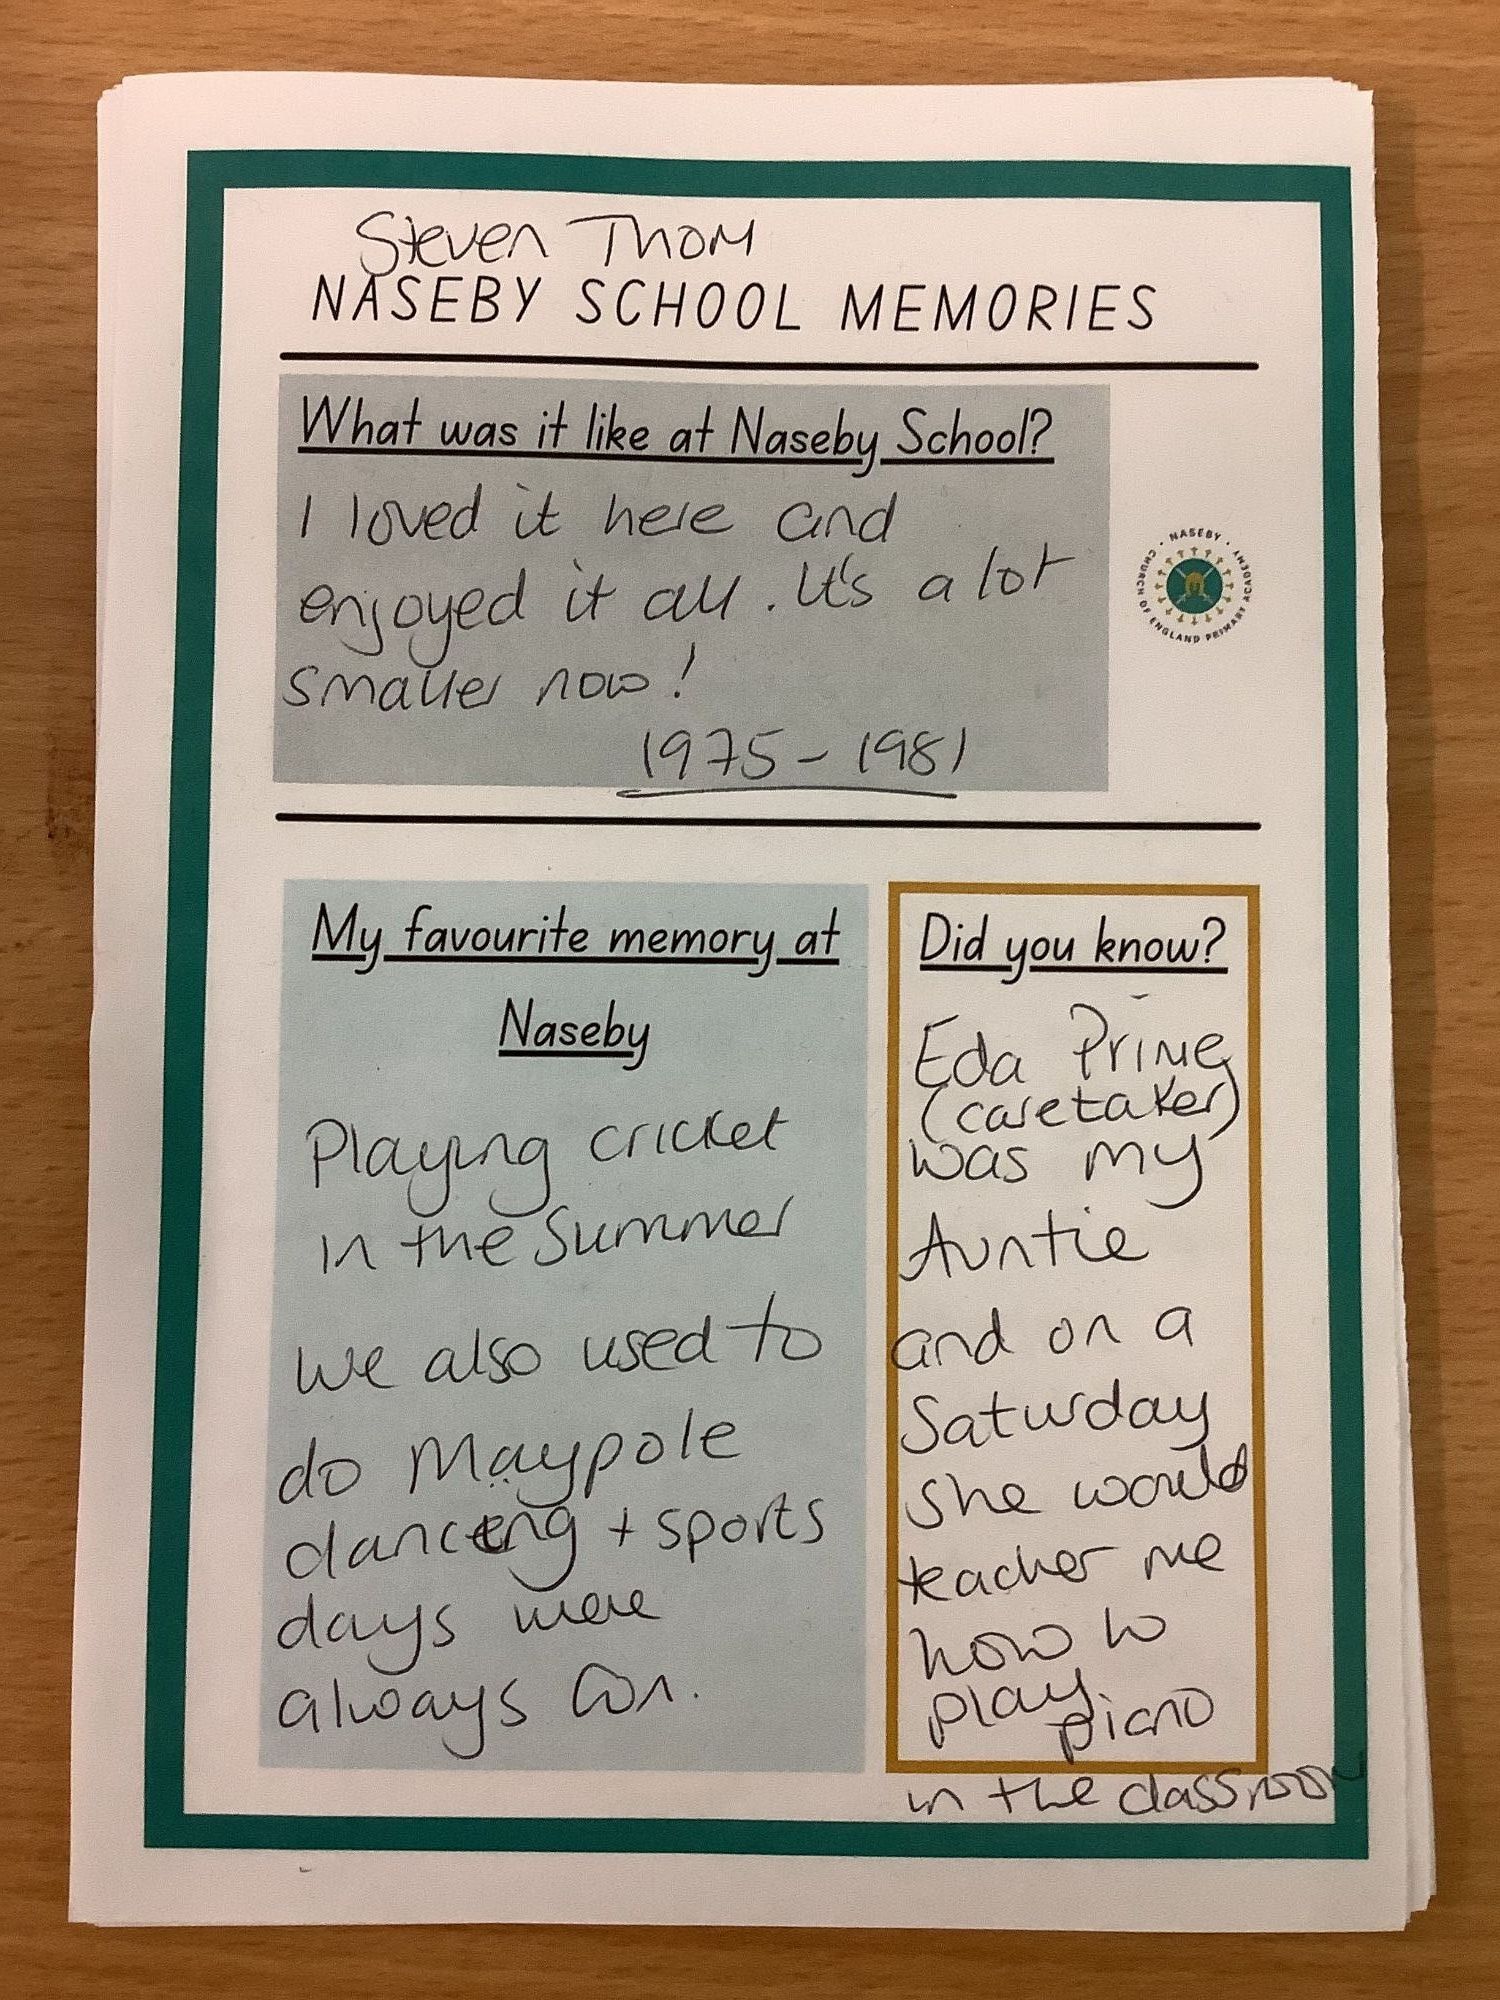 Steven Thom
NASEBY SCHOOL MEMORIES
What was it like at Naseby School?
I loved it here and
enjoyed it all. It's a lot
smaller now!
1975 - 1981
· NASEBY ·
CHURCH OF ENGLAND PRIMARY ACADEMY
My favourite memory at
Naseby
Playing cricket
in the Summer
We also used to
do Maypole
dancing + sports
days were
always fun.
Did you know?
Eda
(caretaker)
was my
Auntie
and on a
Saturday
she would
teacher me
how to
play
piano
in the classroom